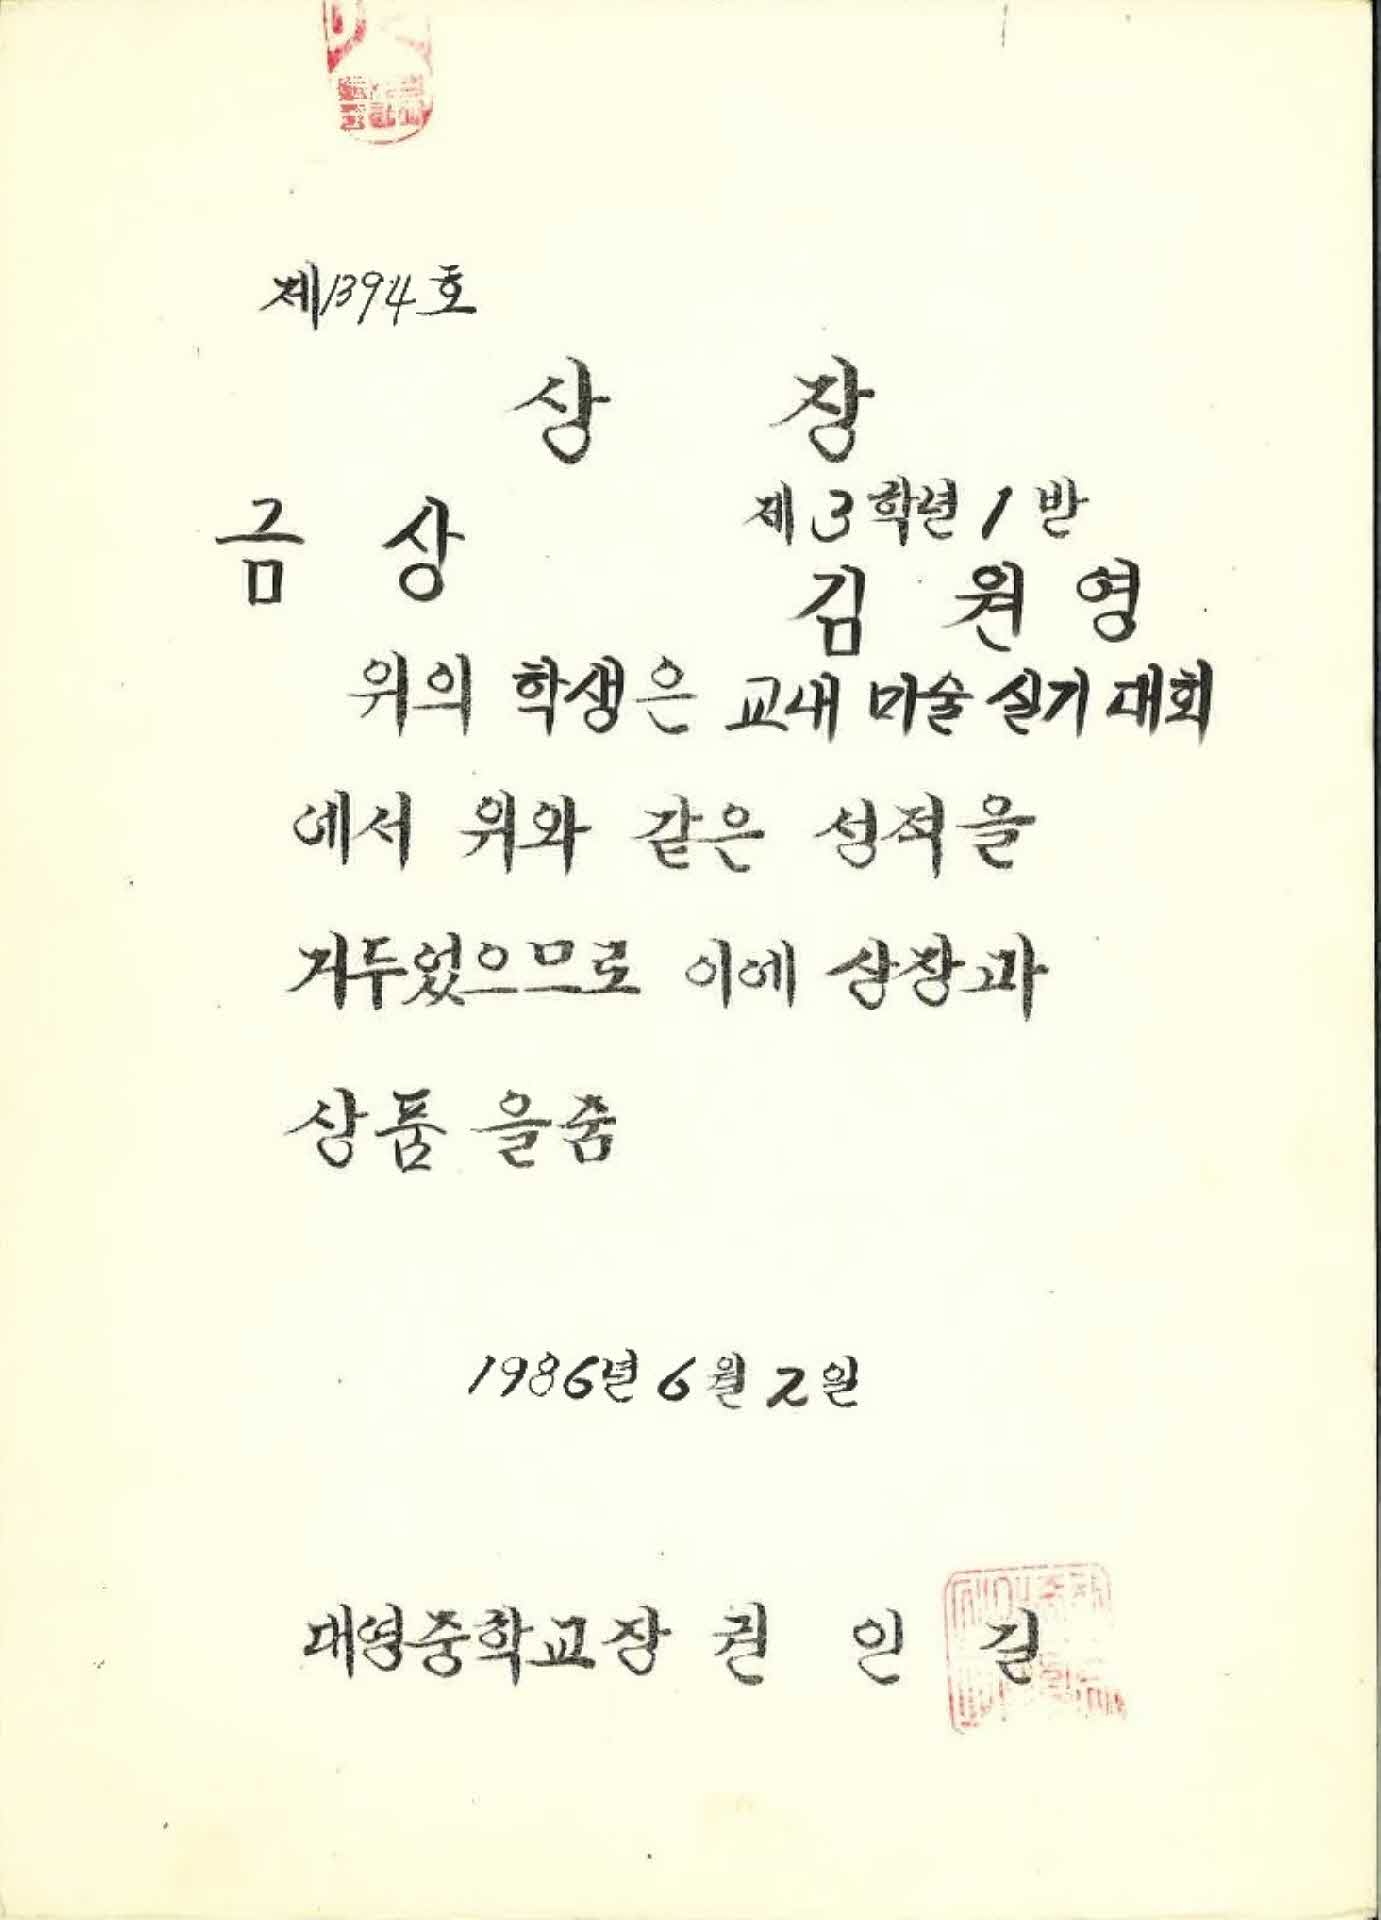 제1394호
상 장
금 상
제3학년 1반
김 원 영
위의 학생은 교내 미술 실기 대회
에서 위와 같은 성적을
거두었으므로 이에 상장과
상품을줌
1986년 6월 2일
대영중학교장 권 인 길